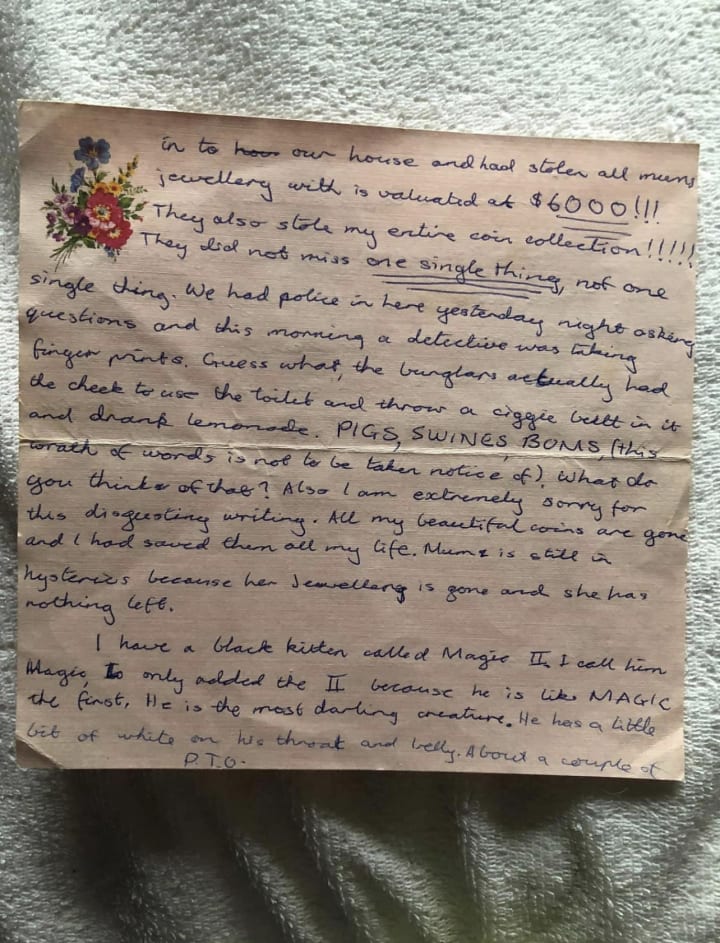 in to our house and had stolen all mums
jewellery with is valuated at $6000!!!
They also stole my entire coin collection!!!!!
They did not miss one single thing, not one
single thing. We had police in here yesterday night asking
questions and this morning a detective was taking
finger prints. Guess what, the burglars actually had
the cheek to use the toilet and throw a ciggie butt in it
and drank lemonade. PIGS, SWINES, BUMS, (this
wrath of words is not to be taken notice of). What do
you think of that? Also I am extremely sorry for
this disgusting writing. All my beautiful coins are gone
and I had saved them all my life. Mum is still in
hysterics because her Jewellery is gone and she has
nothing left.
I have a black kitten called Magic II. I call him
Magic, I only added the II because he is like MAGIC
the first. He is the most darling creature. He has a little
bit of white on his throat and belly. About a couple of
P.T.O.